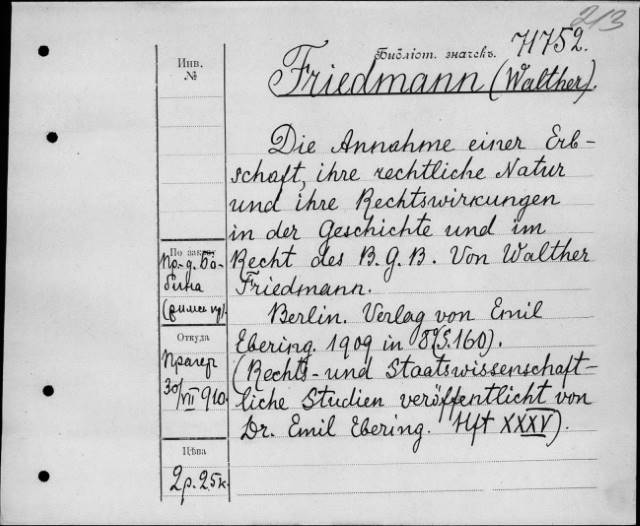 213
71752.
Библіот. значекъ.
Friedmann (Walther).
Инв.
№
Die Annahme einer Erb-
schaft, ihre rechtliche Natur
und ihre Rechtswirkungen
in der Geschichte und im
Recht des B.G.B. Von Walther
Friedmann.
Berlin. Verlag von Emil
Ebering. 1909 in 8°(S.160).
(Rechts- und Staatswissenschaft-
liche Studien veröffentlicht von
Dr. Emil Ebering. Hft XXXV).
По заказу
Пр.-д. Бо-
бина
Откуда
Прагер
30/VII 910.
Цѣна
2 р. 25 к.